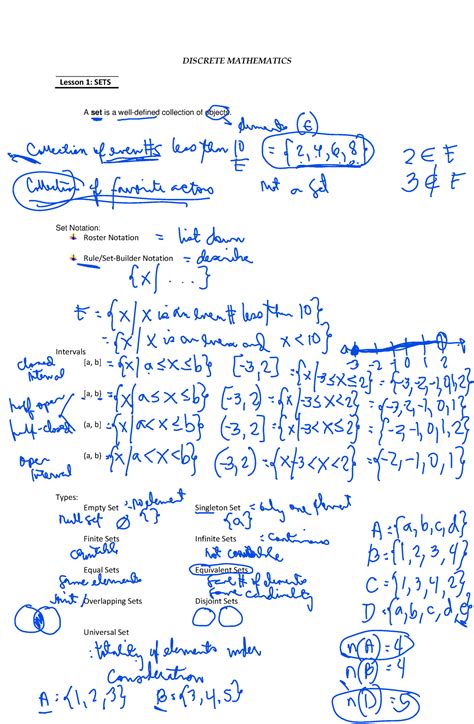 DISCRETE MATHEMATICS
Lesson 1: SETS
A set is a well-defined collection of objects.
elements (∈)
Collection of even #s less than 10 = {2,4,6,8} 2 ∈ E
E 3 ∉ E
Collection of favorite actors not a set
Set Notation:
Roster Notation = list down
Rule/Set-Builder Notation = describe
{x| ...}
E = {x/x is an even # less than 10}
= {x/x is an even and x < 10}
Intervals
-3 -2 -1 0 1 2
closed interval [a, b] = {x|a≤x≤b} [-3,2] = {x|-3≤x≤2} = {-3,-2,-1,0,1,2}
half open [a, b) = {x|a≤x<b} [-3,2) = {x|-3≤x<2} = {-3,-2,-1,0,1}
half-closed (a, b] = {x|a<x≤b} (-3,2] = {x|-3<x≤2} = {-2,-1,0,1,2}
open interval (a, b) = {x|a<x<b} (-3,2) = {x|-3<x<2} = {-2,-1,0,1}
Types:
Empty Set - no element Singleton Set = only one element
Null set ∅ { } {a}
Finite Sets Infinite Sets = continuous
countable not countable
Equal Sets Equivalent Sets
same elements same # of elements
same cardinality
Joint / Overlapping Sets Disjoint Sets
A = {a,b,c,d}
B = {1,2,3,4}
C = {1,3,4,2}
D = {a,b,c,d,e}
Universal Set
: totality of elements under
consideration
n(A) = 4
n(B) = 4
n(D) = 5
A = {1,2,3} B = {3,4,5}